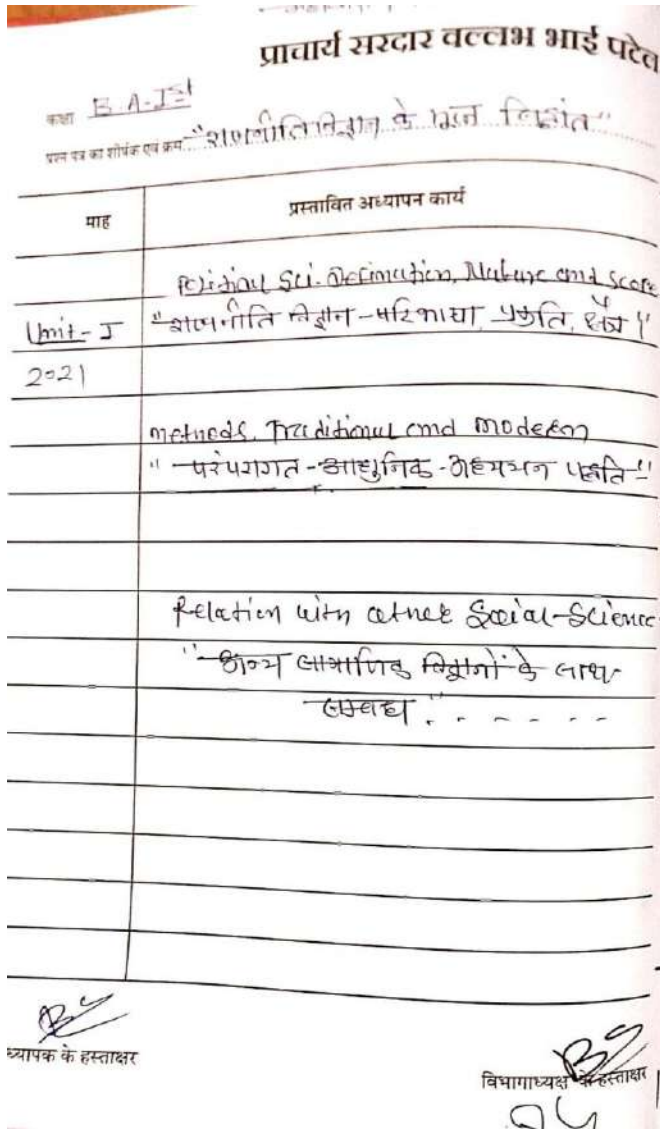 प्राचार्य सरदार वल्लभ भाई पटेल
कक्षा B.A-Ist
प्रश्न पत्र का शीर्षक एवं क्रम "राजनीति विज्ञान के मूल सिद्धांत"
माह प्रस्तावित अध्यापन कार्य
Political Sci. Defination, Nature and Scope
Unit-I "राजनीति विज्ञान-परिभाषा, प्रकृति, क्षेत्र"
2021
methods, Traditional and modern
"परंपरागत-आधुनिक-अध्ययन पद्धति"
Relation with other Social-Science
"अन्य सामाजिक विज्ञानों के साथ
सम्बंध" . - - - - -
ध्यापक के हस्ताक्षर
विभागाध्यक्ष के हस्ताक्षर